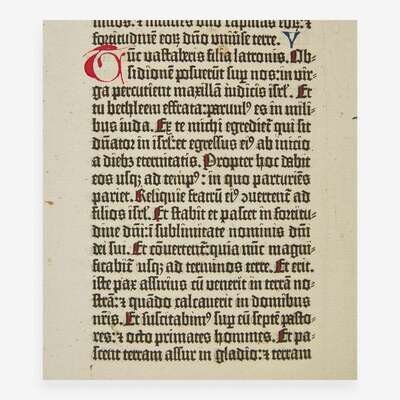 fortitudinē eoꝝ dūo vniu̇se terre. V
Tūc vastaberis filia latronis. Ob-
sidionē posuerūt suꝑ nos: in vir-
ga percutient maxillā iudicis isrl̄. Et
tu bethleem effrata: paruul᷒ es in mili-
bus iuda. Ex te michi egrediet̄ qui sit
dn̄ator in isrl̄: et egressus ei᷒ ab inicio
a dieb₉ eternitatis. Propter hoc dabit
eos usqꝫ ad temp᷒: in quo parturiēs
pariet. Reliquie fratrū ei᷒ ↄuerrent̄ ad
filios isrl̄. Et stabit et pascet in fortitu-
dine dn̄i: ī sublimitate nominis dn̄i
dei sui. Et cōuertent̄: quia nūc magni-
ficabit̄ usqꝫ ad terminos terre. Et erit
iste pax assirius cū venerit in terrā no-
strā: ⁊ quādo calcauerit in domibus
nr̄is. Et suscitabim᷒ suꝑ eū septē pasto-
res: ⁊ octo primates homines. Et pa-
scent terram assur in gladio: ⁊ terram